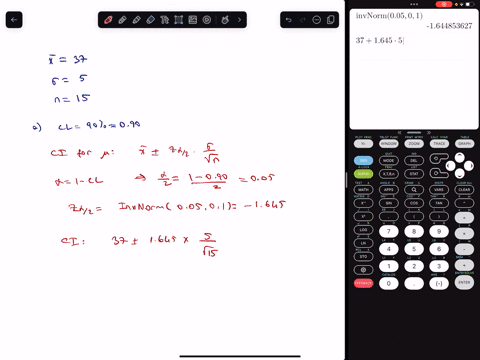 x̄ = 37
σ = 5
n = 15
a) CL = 90% = 0.90
CI for μ: x̄ ± Zα/2 · σ/√n
α = 1 - CL ⇒ α/2 = (1 - 0.90)/2 = 0.05
Zα/2 = InvNorm(0.05,0,1) = -1.645
CI: 37 ± 1.645 × 5/√15
invNorm(0.05,0,1)
-1.644853627
37+1.645·5
Y= WINDOW ZOOM TRACE GRAPH
2ND MODE DEL
ALPHA X,T,θ,n STAT
MATH APPS PRGM VARS CLEAR
x⁻¹ SIN COS TAN ^
x² , ( ) ÷
LOG 7 8 9 ×
LN 4 5 6 −
STO 1 2 3 +
0 . (-) ENTER